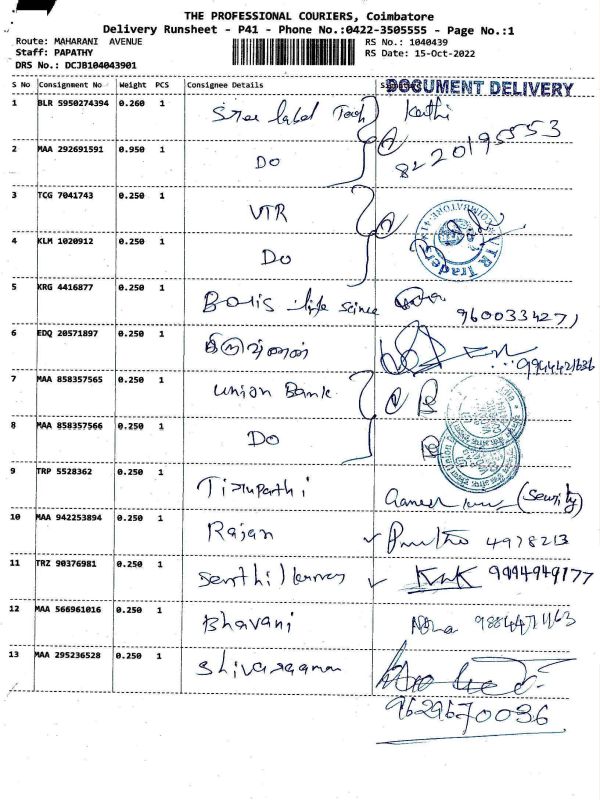 THE PROFESSIONAL COURIERS, Coimbatore
Delivery Runsheet - P41 - Phone No.:0422-3505555 - Page No.:1
Route: MAHARANI AVENUE RS No.: 1040439
Staff: PAPATHY RS Date: 15-Oct-2022
DRS No.: DCJB104043901
S No Consignment No Weight PCS Consignee Details DOCUMENT DELIVERY
1 BLR 5950274394 0.260 1 label
8220195553
2 MAA 292691591 0.950 1 Do
3 TCG 7041743 0.250 1 VTR
VTR Traders COIMBATORE-41
4 KLM 1020912 0.250 1 Do
5 KRG 4416877 0.250 1 life
9600334271
6 EDQ 20571897 0.250 1
7 MAA 858357565 0.250 1 Union Bank
8 MAA 858357566 0.250 1 Do
9 TRP 5528362 0.250 1 Tirupathi (Security)
10 MAA 942253894 0.250 1 Rajan 4978213
11 TRZ 90376981 0.250 1 9994949177
12 MAA 566961016 0.250 1 Bhavani
13 MAA 295236528 0.250 1
9629670036